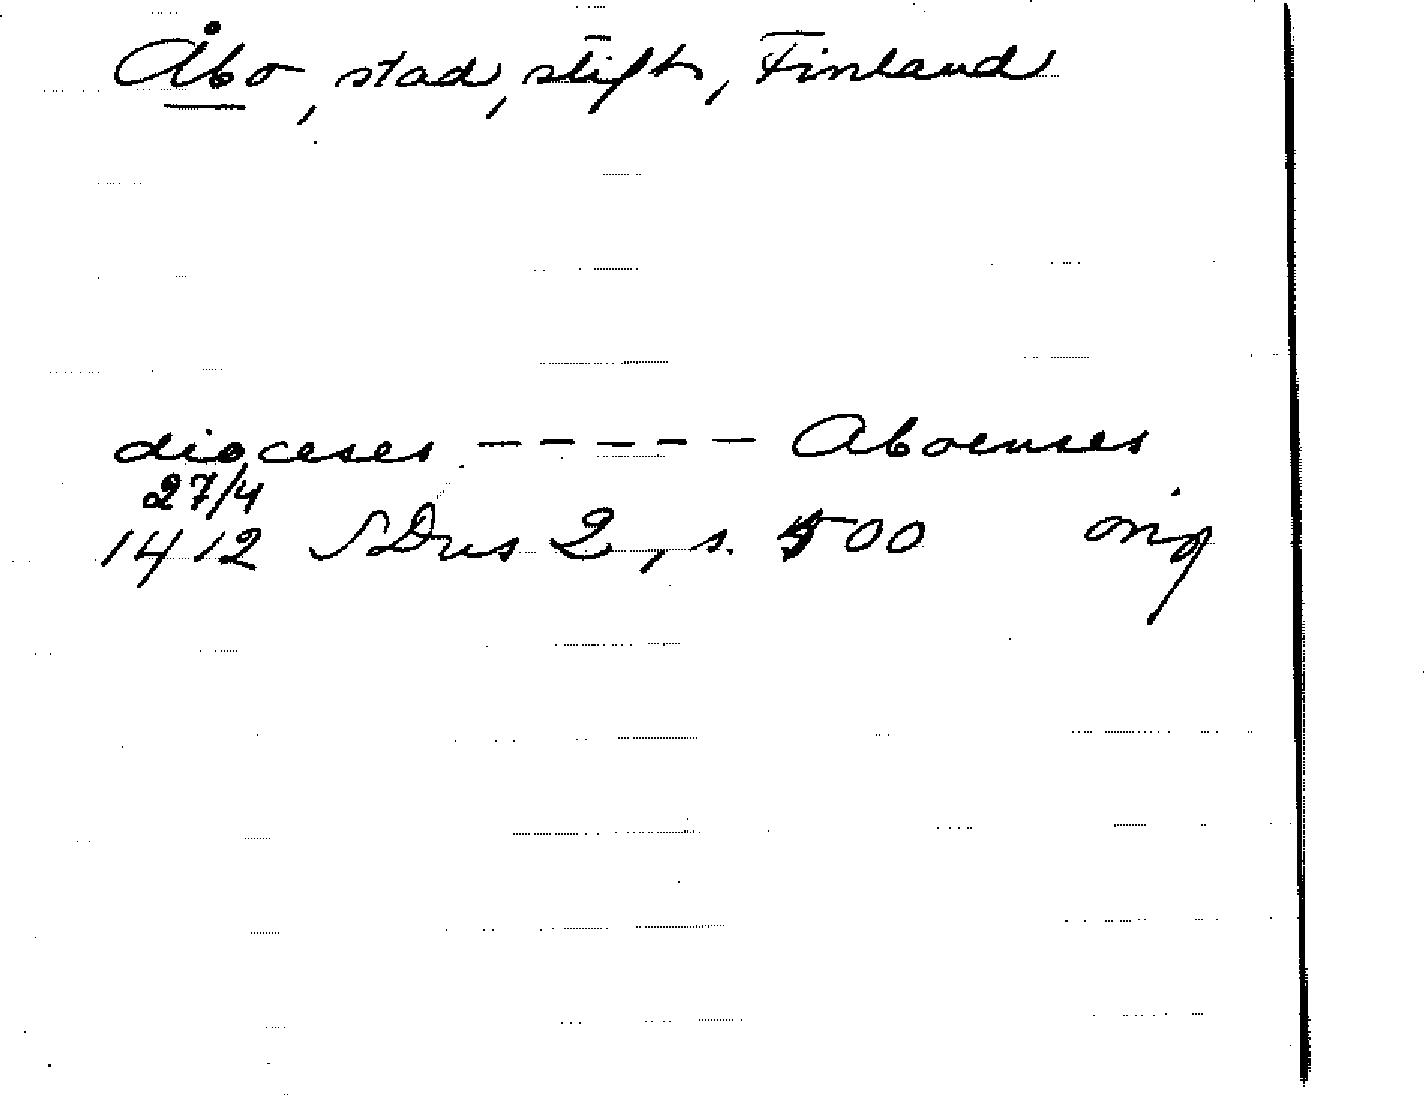 Åbo, stad, stift, Finland
dioceses ----- Aboenses
27/4
1412 SDns 2, s. 500 orig